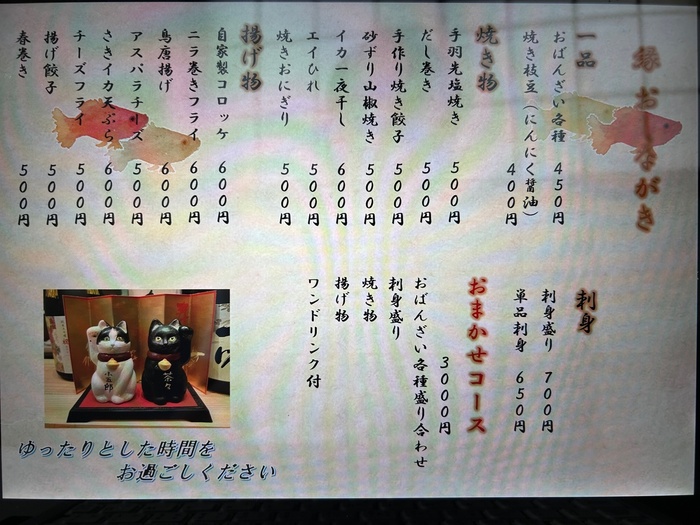 縁 おしながき
一品
おばんざい各種 450円
焼き枝豆(にんにく醤油) 400円
焼き物
手羽先塩焼き 500円
だし巻き 500円
手作り焼き餃子 500円
砂ずり山椒焼き 500円
イカ一夜干し 600円
エイひれ 500円
焼きおにぎり 500円
揚げ物
自家製コロッケ 600円
ニラ巻きフライ 600円
鳥唐揚げ 600円
アスパラチーズ 500円
さきイカ天ぷら 600円
チーズフライ 500円
揚げ餃子 500円
春巻き 500円
刺身
刺身盛り 700円
単品刺身 650円
おまかせコース
3000円
おばんざい各種盛り合わせ
刺身盛り
焼き物
揚げ物
ワンドリンク付
茶々
ゆったりとした時間を
お過ごしください